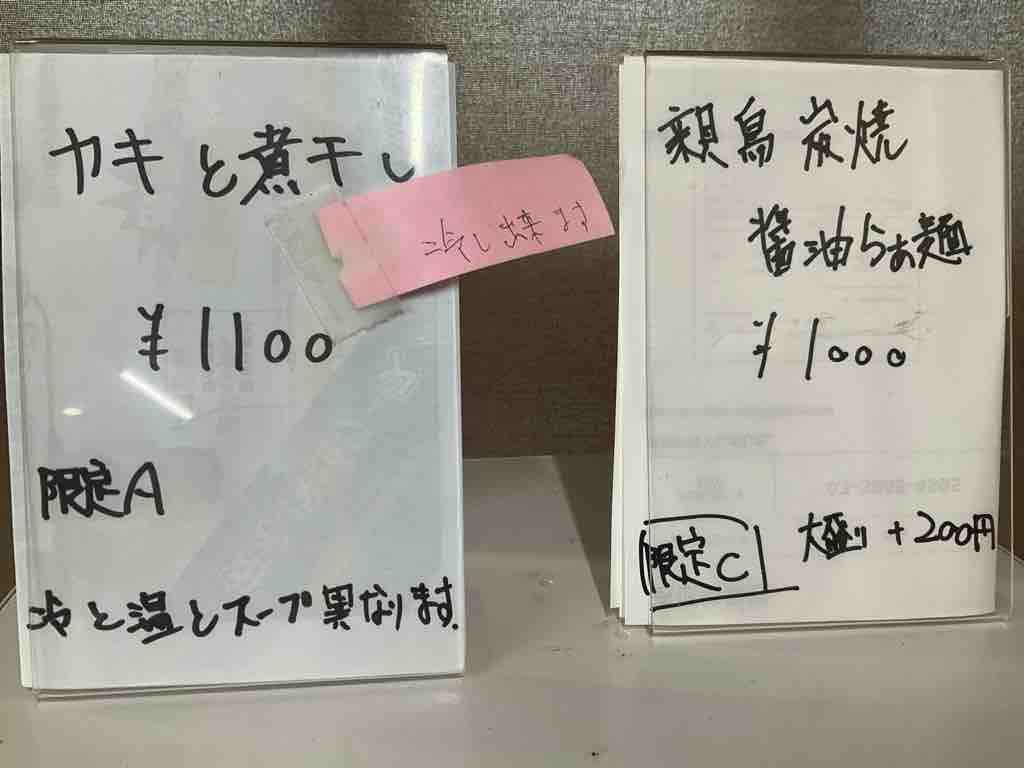 カキと煮干し
冷し出来ます
¥1100
限定A
冷と温とスープ異なります.
親鳥 炭焼
醤油らぁ麺
¥1000
限定C
大盛り +200円